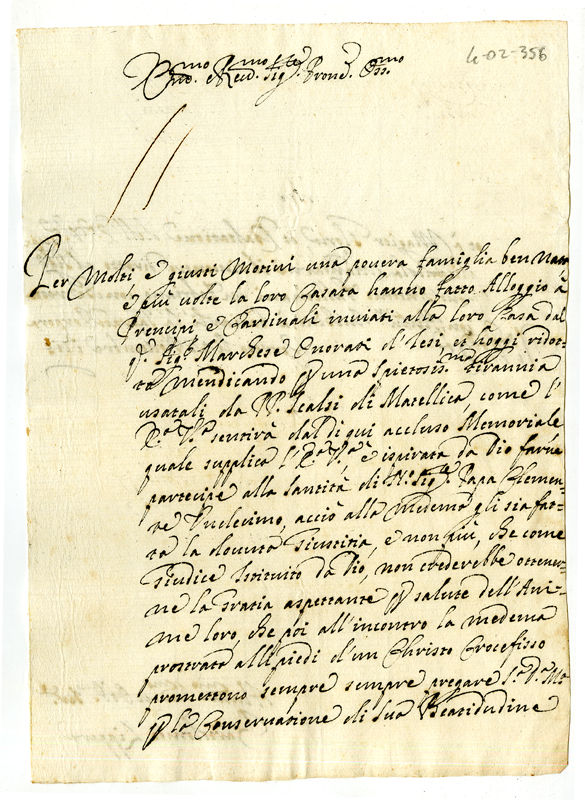 4-02-356
Per Molti, e giusti Motivi una povera famiglia ben nata,
e piu volte la loro Casata hanno fatto Alloggio à
Prencipi e Cardinali inviati alla loro Casa dal
Sig.r Marchese Onorati d'Iesi, et hoggi ridot-
ta mendicando una spietosis.ma tirannia
usatali da PP. Scalzi di Matellica come l'
sentirà dal di qui accluso Memoriale
quale supplica l' è ispirata da Dio farne
partecipe alla Santità di N.ro Sig.re Papa Clemen-
te Undecimo, acciò alla medema gli sia fat-
ta la dovuta Giustitia, e non più, che come
Giudice Istituito da Dio, non crederebbe ottener-
ne la Gratia aspettante salute dell'Ani-
me loro, che poi all'incontro la medema
prostrata alli piedi d'un Christo Crocefisso
promettono sempre sempre pregare
la Conservatione di Sua Beatidudine